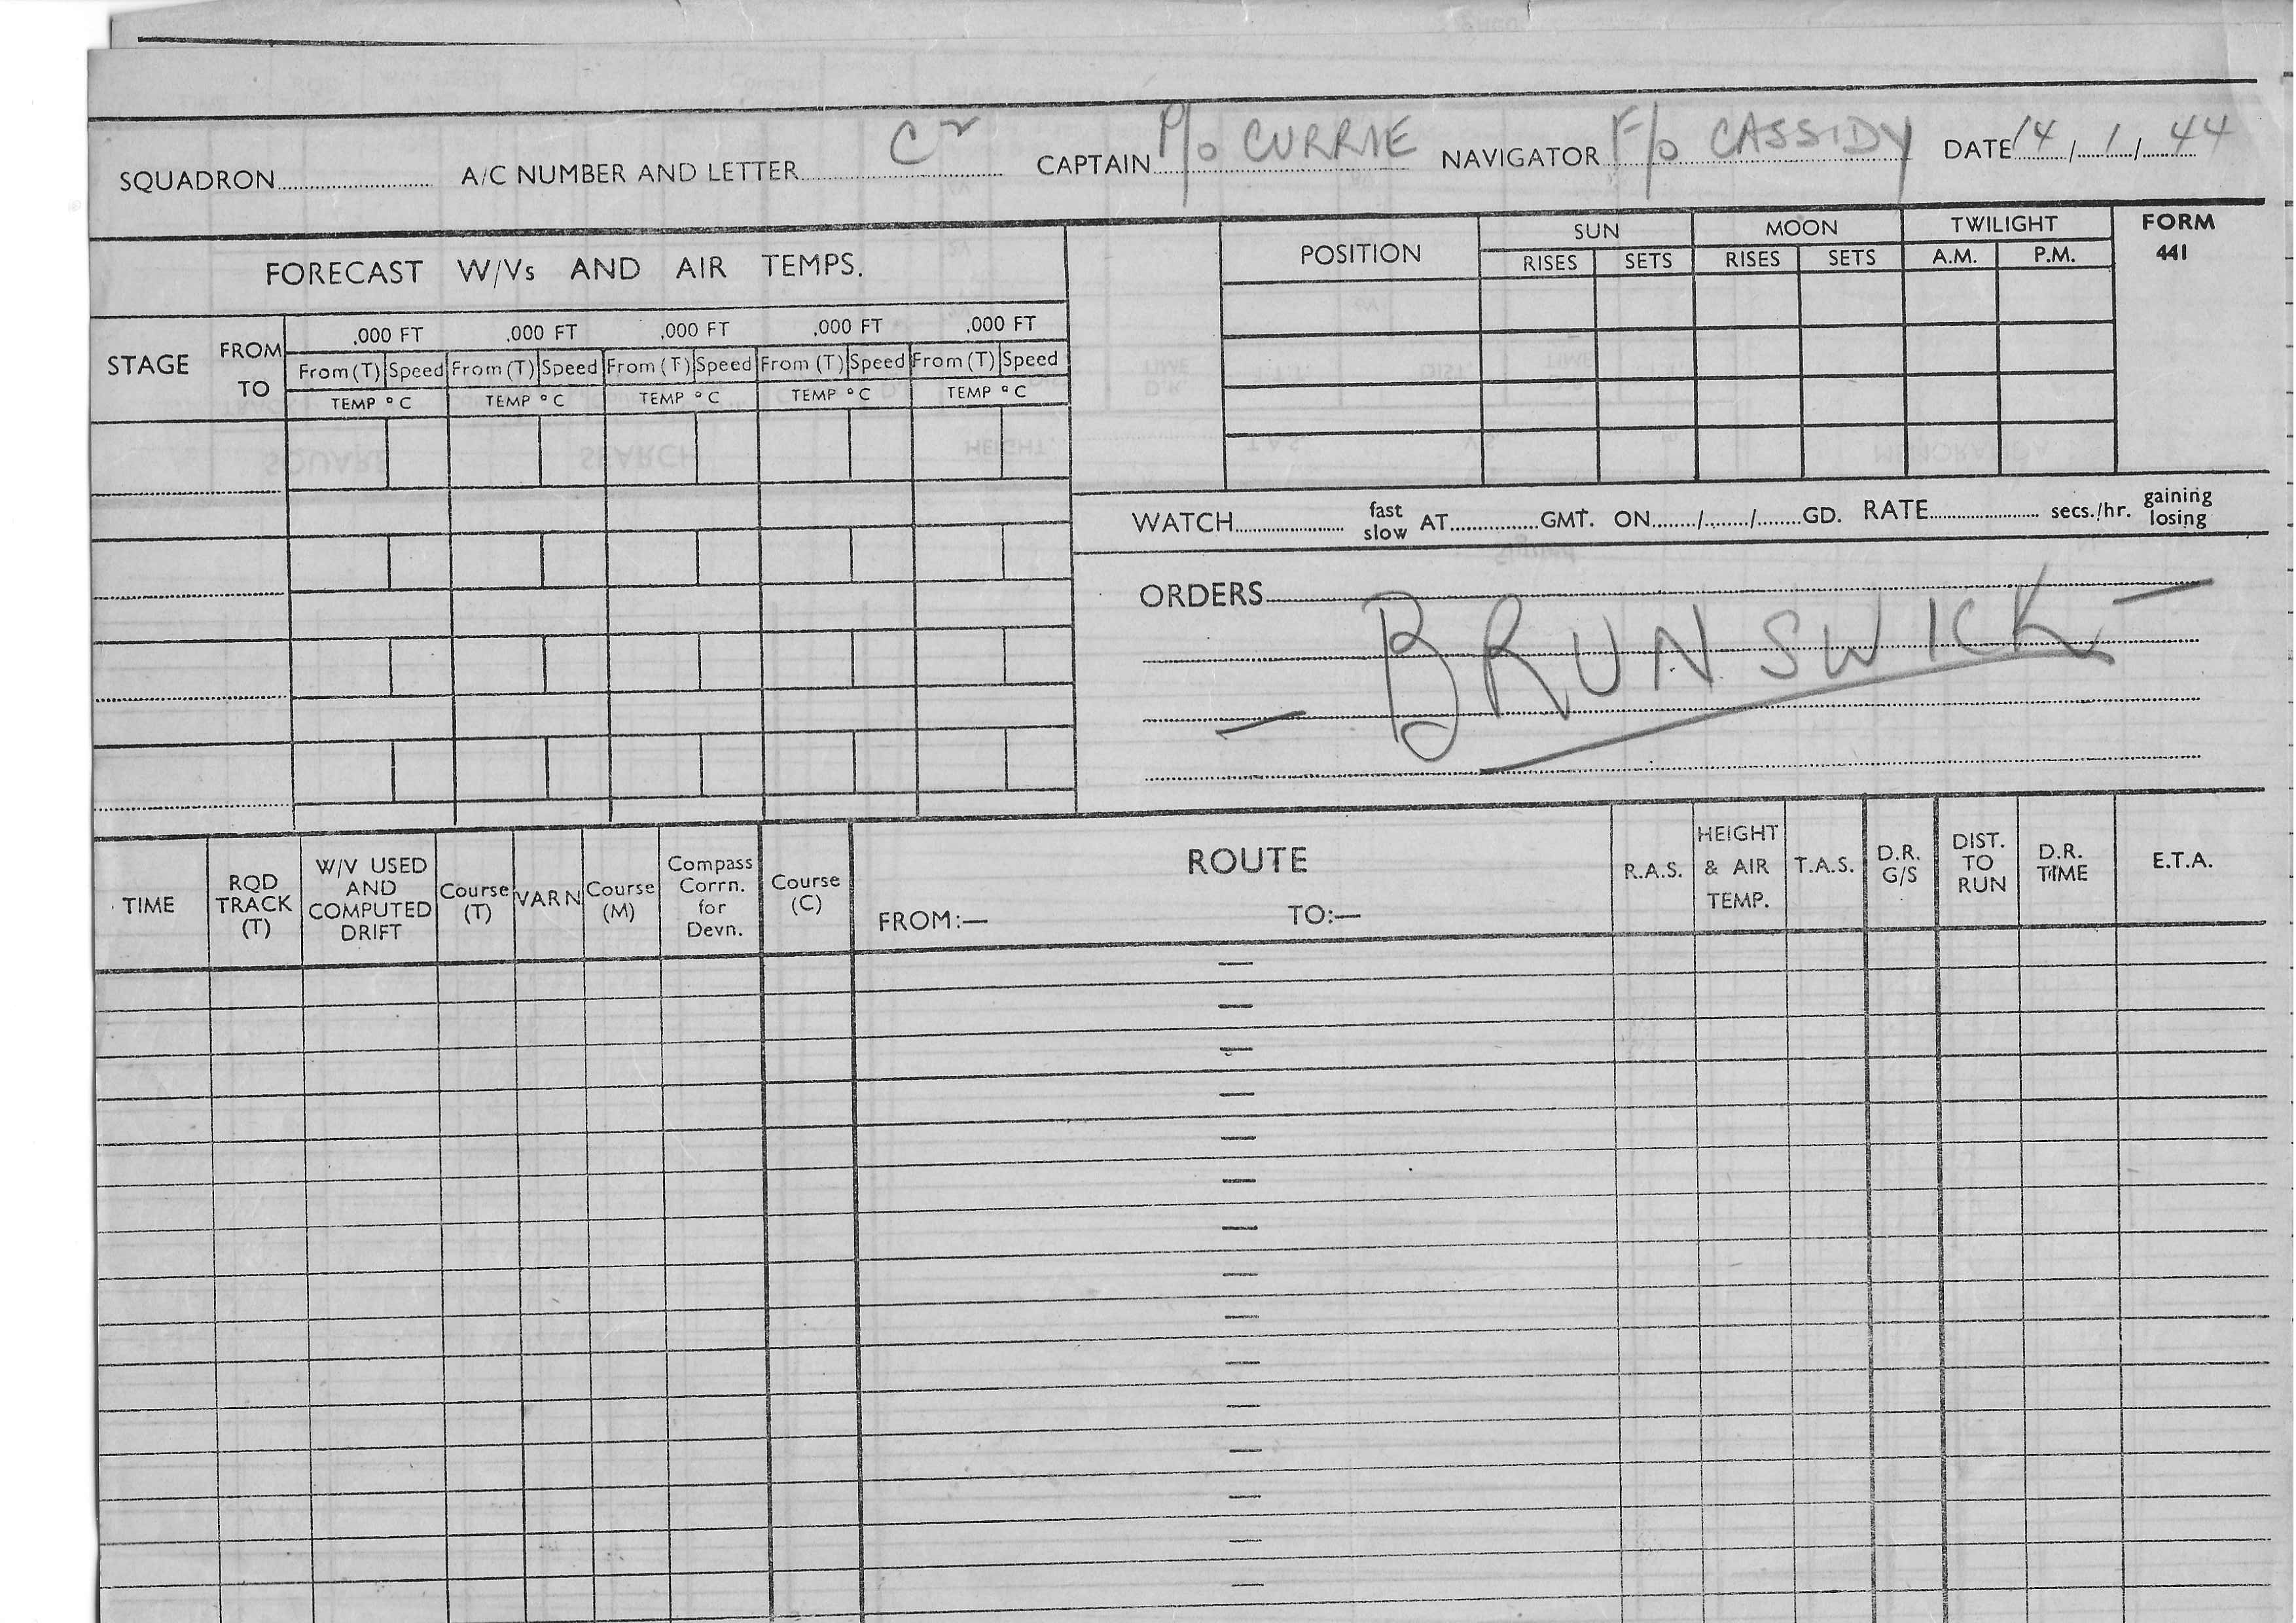 SQUADRON A/C NUMBER AND LETTER C2 CAPTAIN P/O CURRIE NAVIGATOR F/O CASSIDY DATE 14/1/44
FORECAST W/Vs AND AIR TEMPS.
STAGE FROM TO
,000 FT ,000 FT ,000 FT ,000 FT ,000 FT
From (T) Speed From (T) Speed From (T) Speed From (T) Speed From (T) Speed
TEMP °C TEMP °C TEMP °C TEMP °C TEMP °C
POSITION SUN MOON TWILIGHT FORM
RISES SETS RISES SETS A.M. P.M. 441
WATCH fast slow AT GMT. ON / / GD. RATE secs./hr. gaining losing
ORDERS
— BRUNSWICK —
TIME
RQD TRACK (T)
W/V USED AND COMPUTED DRIFT
Course (T)
VARN
Course (M)
Compass Corrn. for Devn.
Course (C)
ROUTE
FROM:— TO:—
R.A.S.
HEIGHT & AIR TEMP.
T.A.S.
D.R. G/S
DIST. TO RUN
D.R. TIME
E.T.A.